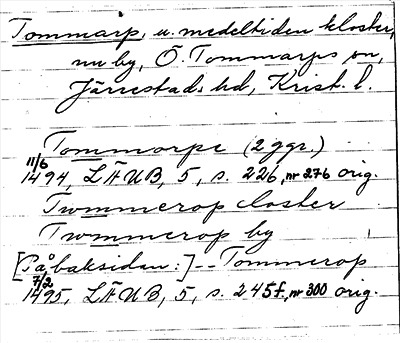 Tommarp, u. medeltiden kloster,
nu by, Ö. Tommarps sn,
Järrestads hd, Krist. l.
Tommorpe (2 ggr.)
11/6
1494, LÄUB, 5, s. 226, nr 276 orig.
Twmmerop closter
Twmmerop by
[På baksidan:] -- Tommerop
7/2
1495, LÄUB, 5, s. 245f, nr 300 orig.